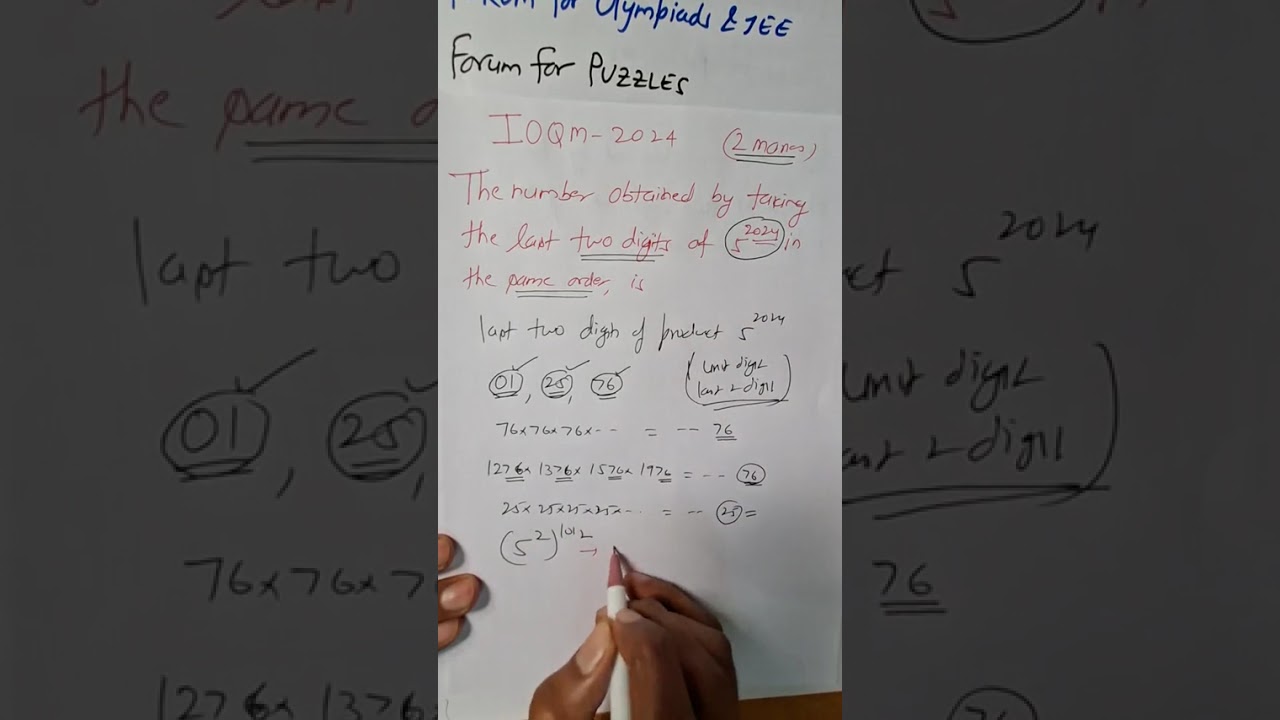 for Olympiads & JEE
Forum for PUZZLES
IOQM-2024 (2 marks)
The number obtained by taking
the last two digits of 5^2024 in
the same order, is
last two digits of product 5^2024
01, 25, 76
(unit digit
last 2 digit)
76×76×76×-- = -- 76
1276×1376×1576×1976 = -- 76
25×25×25×25×-- = -- 25 =
(5^2)^1012 →